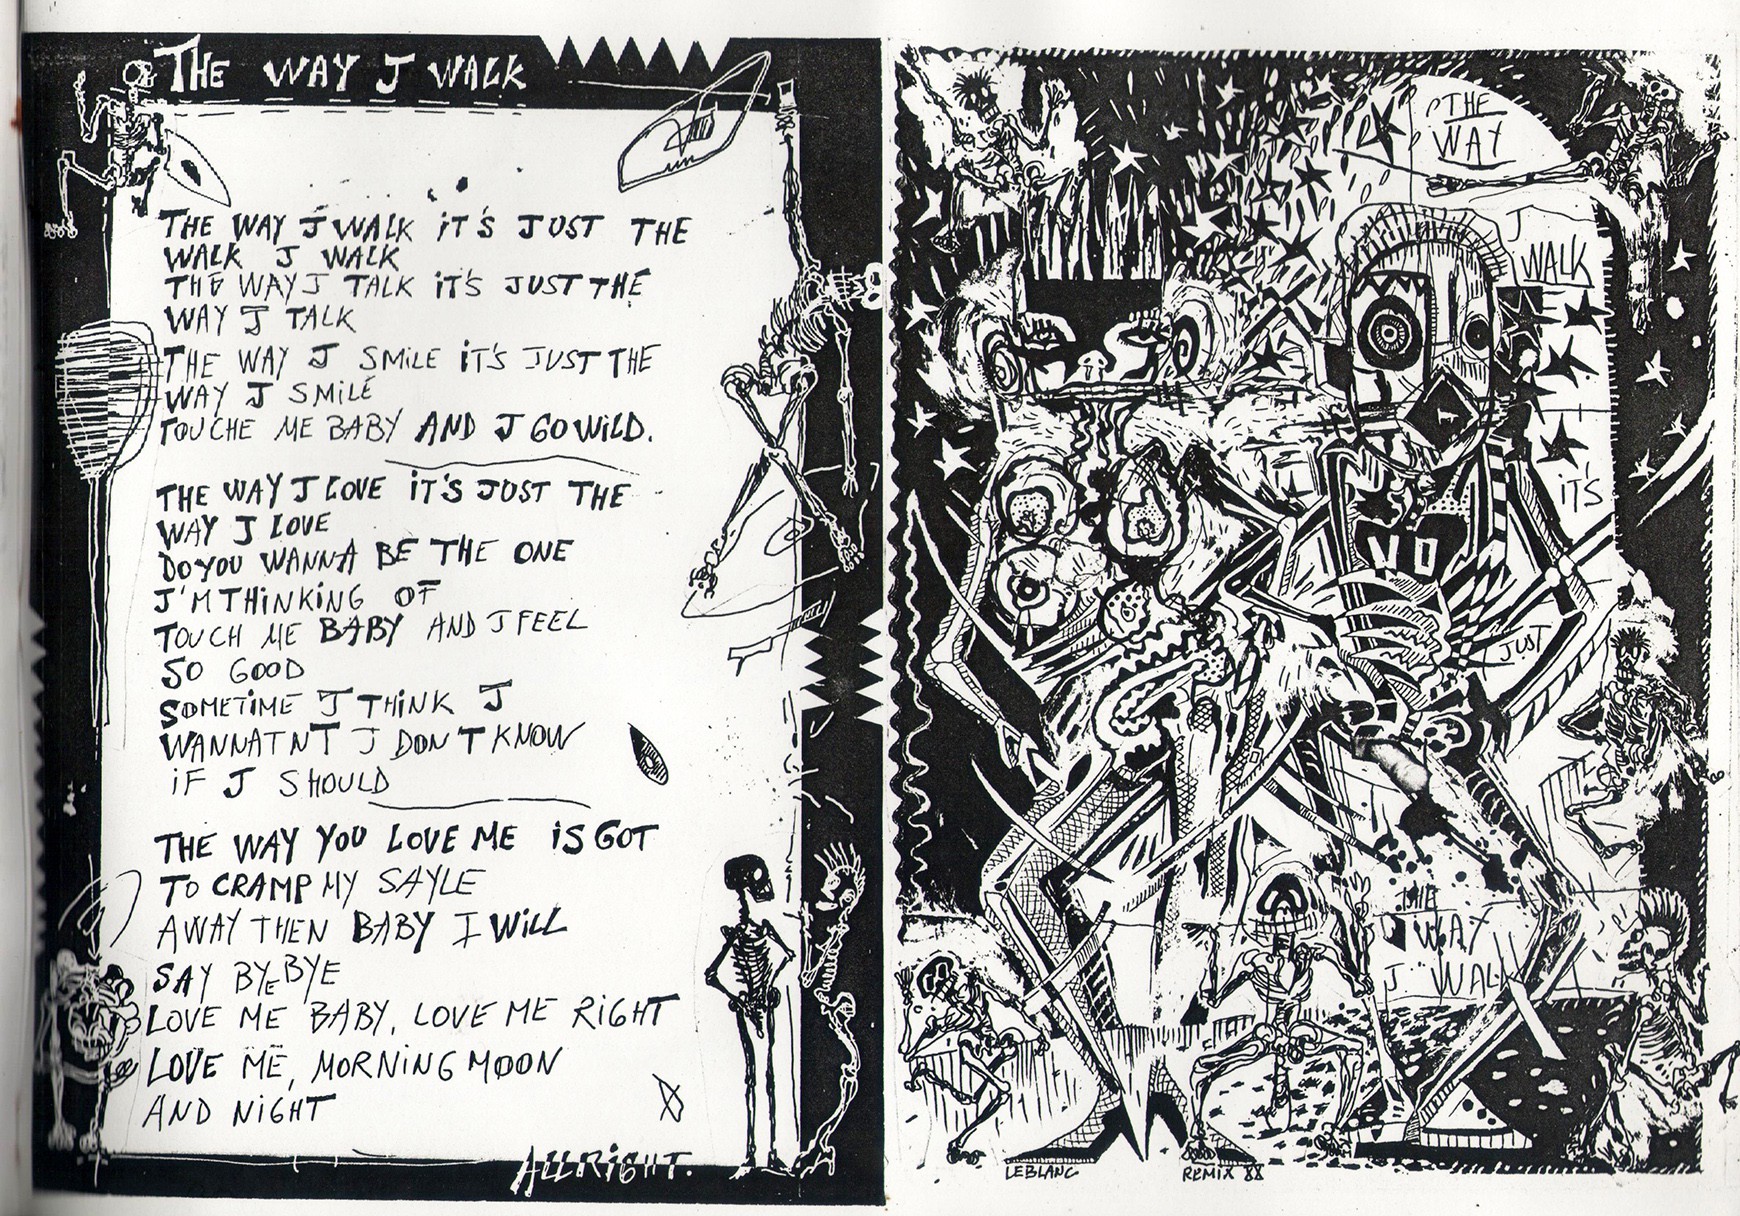 THE WAY J WALK
THE WAY J WALK iT'S JUST THE
WALK J WALK
THE WAY J TALK iT'S JUST THE
WAY J TALK
THE WAY J SMiLE iT'S JUST THE
WAY J SMiLE
TOUCHE ME BABY AND J GO WiLD.
THE WAY J LOVE iT'S JUST THE
WAY J LOVE
DO YOU WANNA BE THE ONE
J'M THiNKiNG OF
TOUCH ME BABY AND J FEEL
SO GOOD
SOMETiME J THiNK J
WANNATNT J DON'T KNOW
iF J SHOULD
THE WAY YOU LOVE ME iS GOT
TO CRAMP MY SAYLE
AWAY THEN BABY I WiLL
SAY BYEBYE
LOVE ME BABY, LOVE ME RiGHT
LOVE ME, MORNiNG MOON
AND NiGHT
ALLRiGHT.
THE
WAY
J
WALK
iT'S
JUST
THE
WAY
J WALK
LEBLANC
REMiX 88